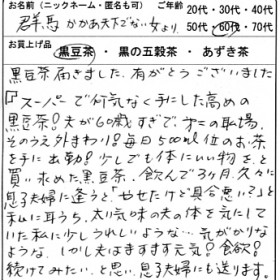 お名前（ニックネーム・匿名も可）　ご年齢
群馬 かかあ天下でない女より　20代・30代・40代
50代・60代・70代
お買上げ品
黒豆茶・黒の五穀茶・あずき茶
黒豆茶届きました。有がとうございました
『スーパーで何気なく手にした高めの
黒豆茶！夫が60歳すぎで、第二の職場、
そのうえ外まわり！毎日500ml位のお茶
を手に出勤！少しでも体にいい物を、と
買い求めた黒豆茶。飲んで3ヶ月、久々に
息子夫婦に逢うと「やせたけど具合悪い？」と
私に耳うち、太り気味の夫の体を気にして
いた私に少しうれしいような…気がかりな
ような、しかし夫はますます元気！食欲！
続けてみたい、と思い、息子夫婦にも送ります